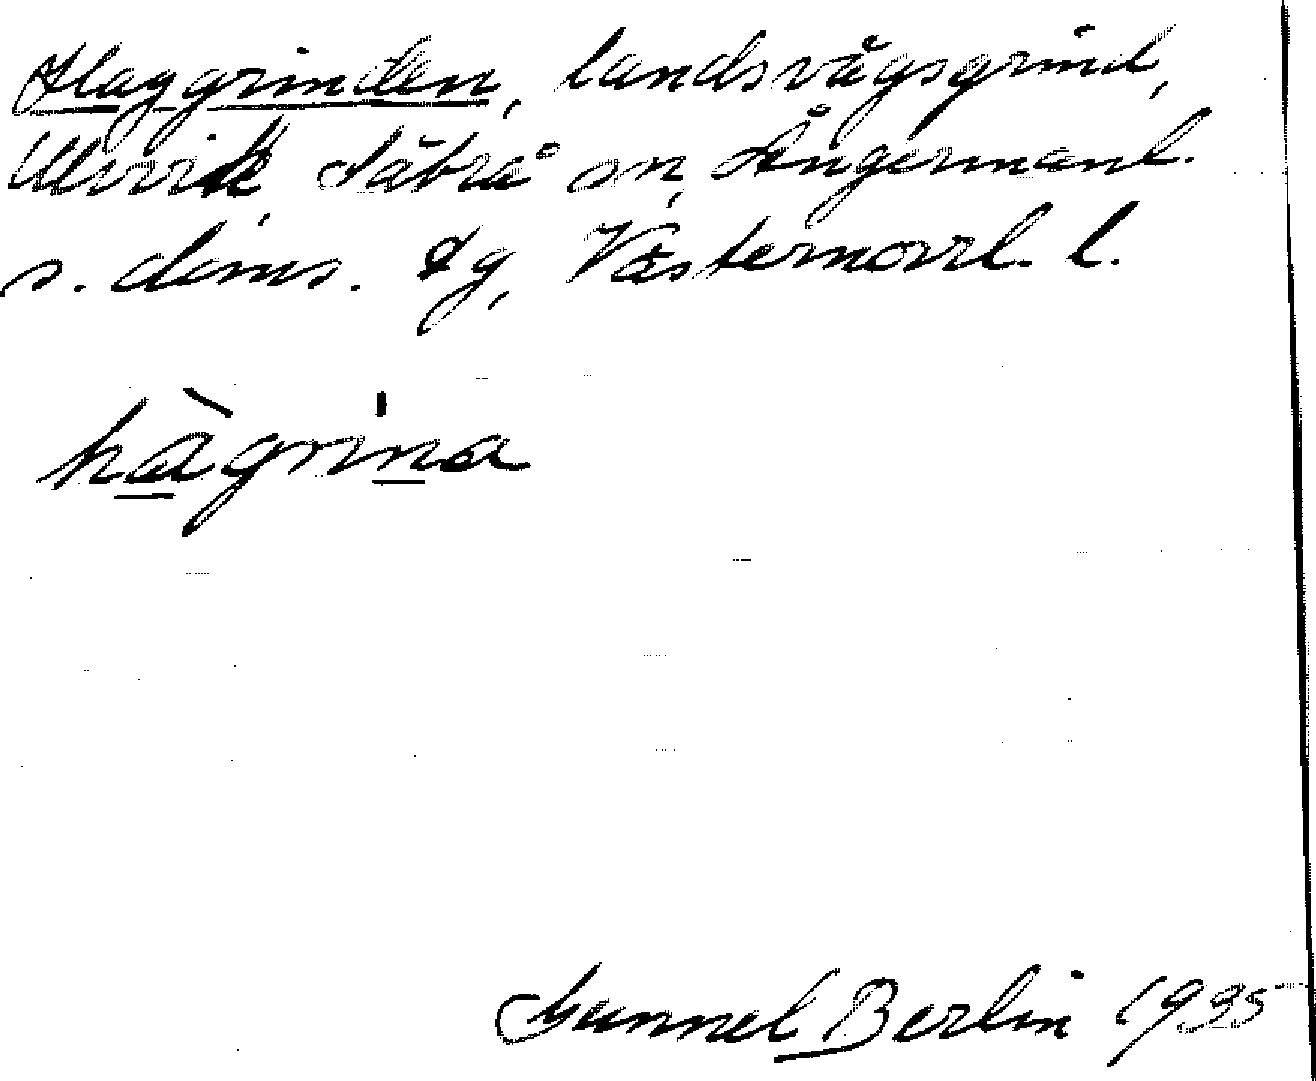 Haggrinden, landsvägsgrind,
Ulvvik, Säbrå sn, Ångermanl.
s. doms. lg, Västernorrl. l.
hàgrina
Gunnel Berlin 1935